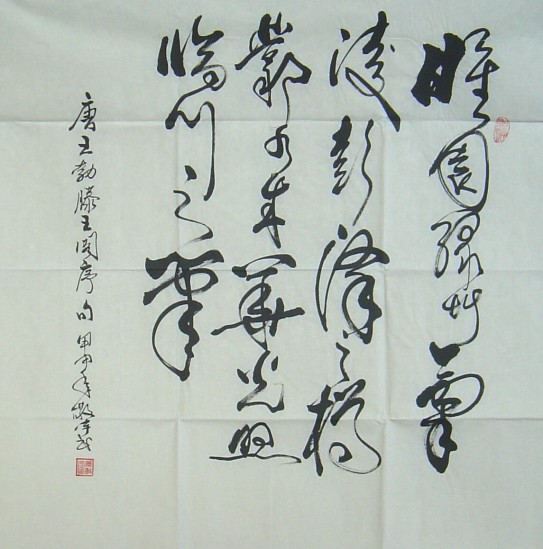 睢園綠竹氣
凌彭澤之樽
鄴水朱華光照
臨川之筆
唐王勃滕王阁序句 甲申年